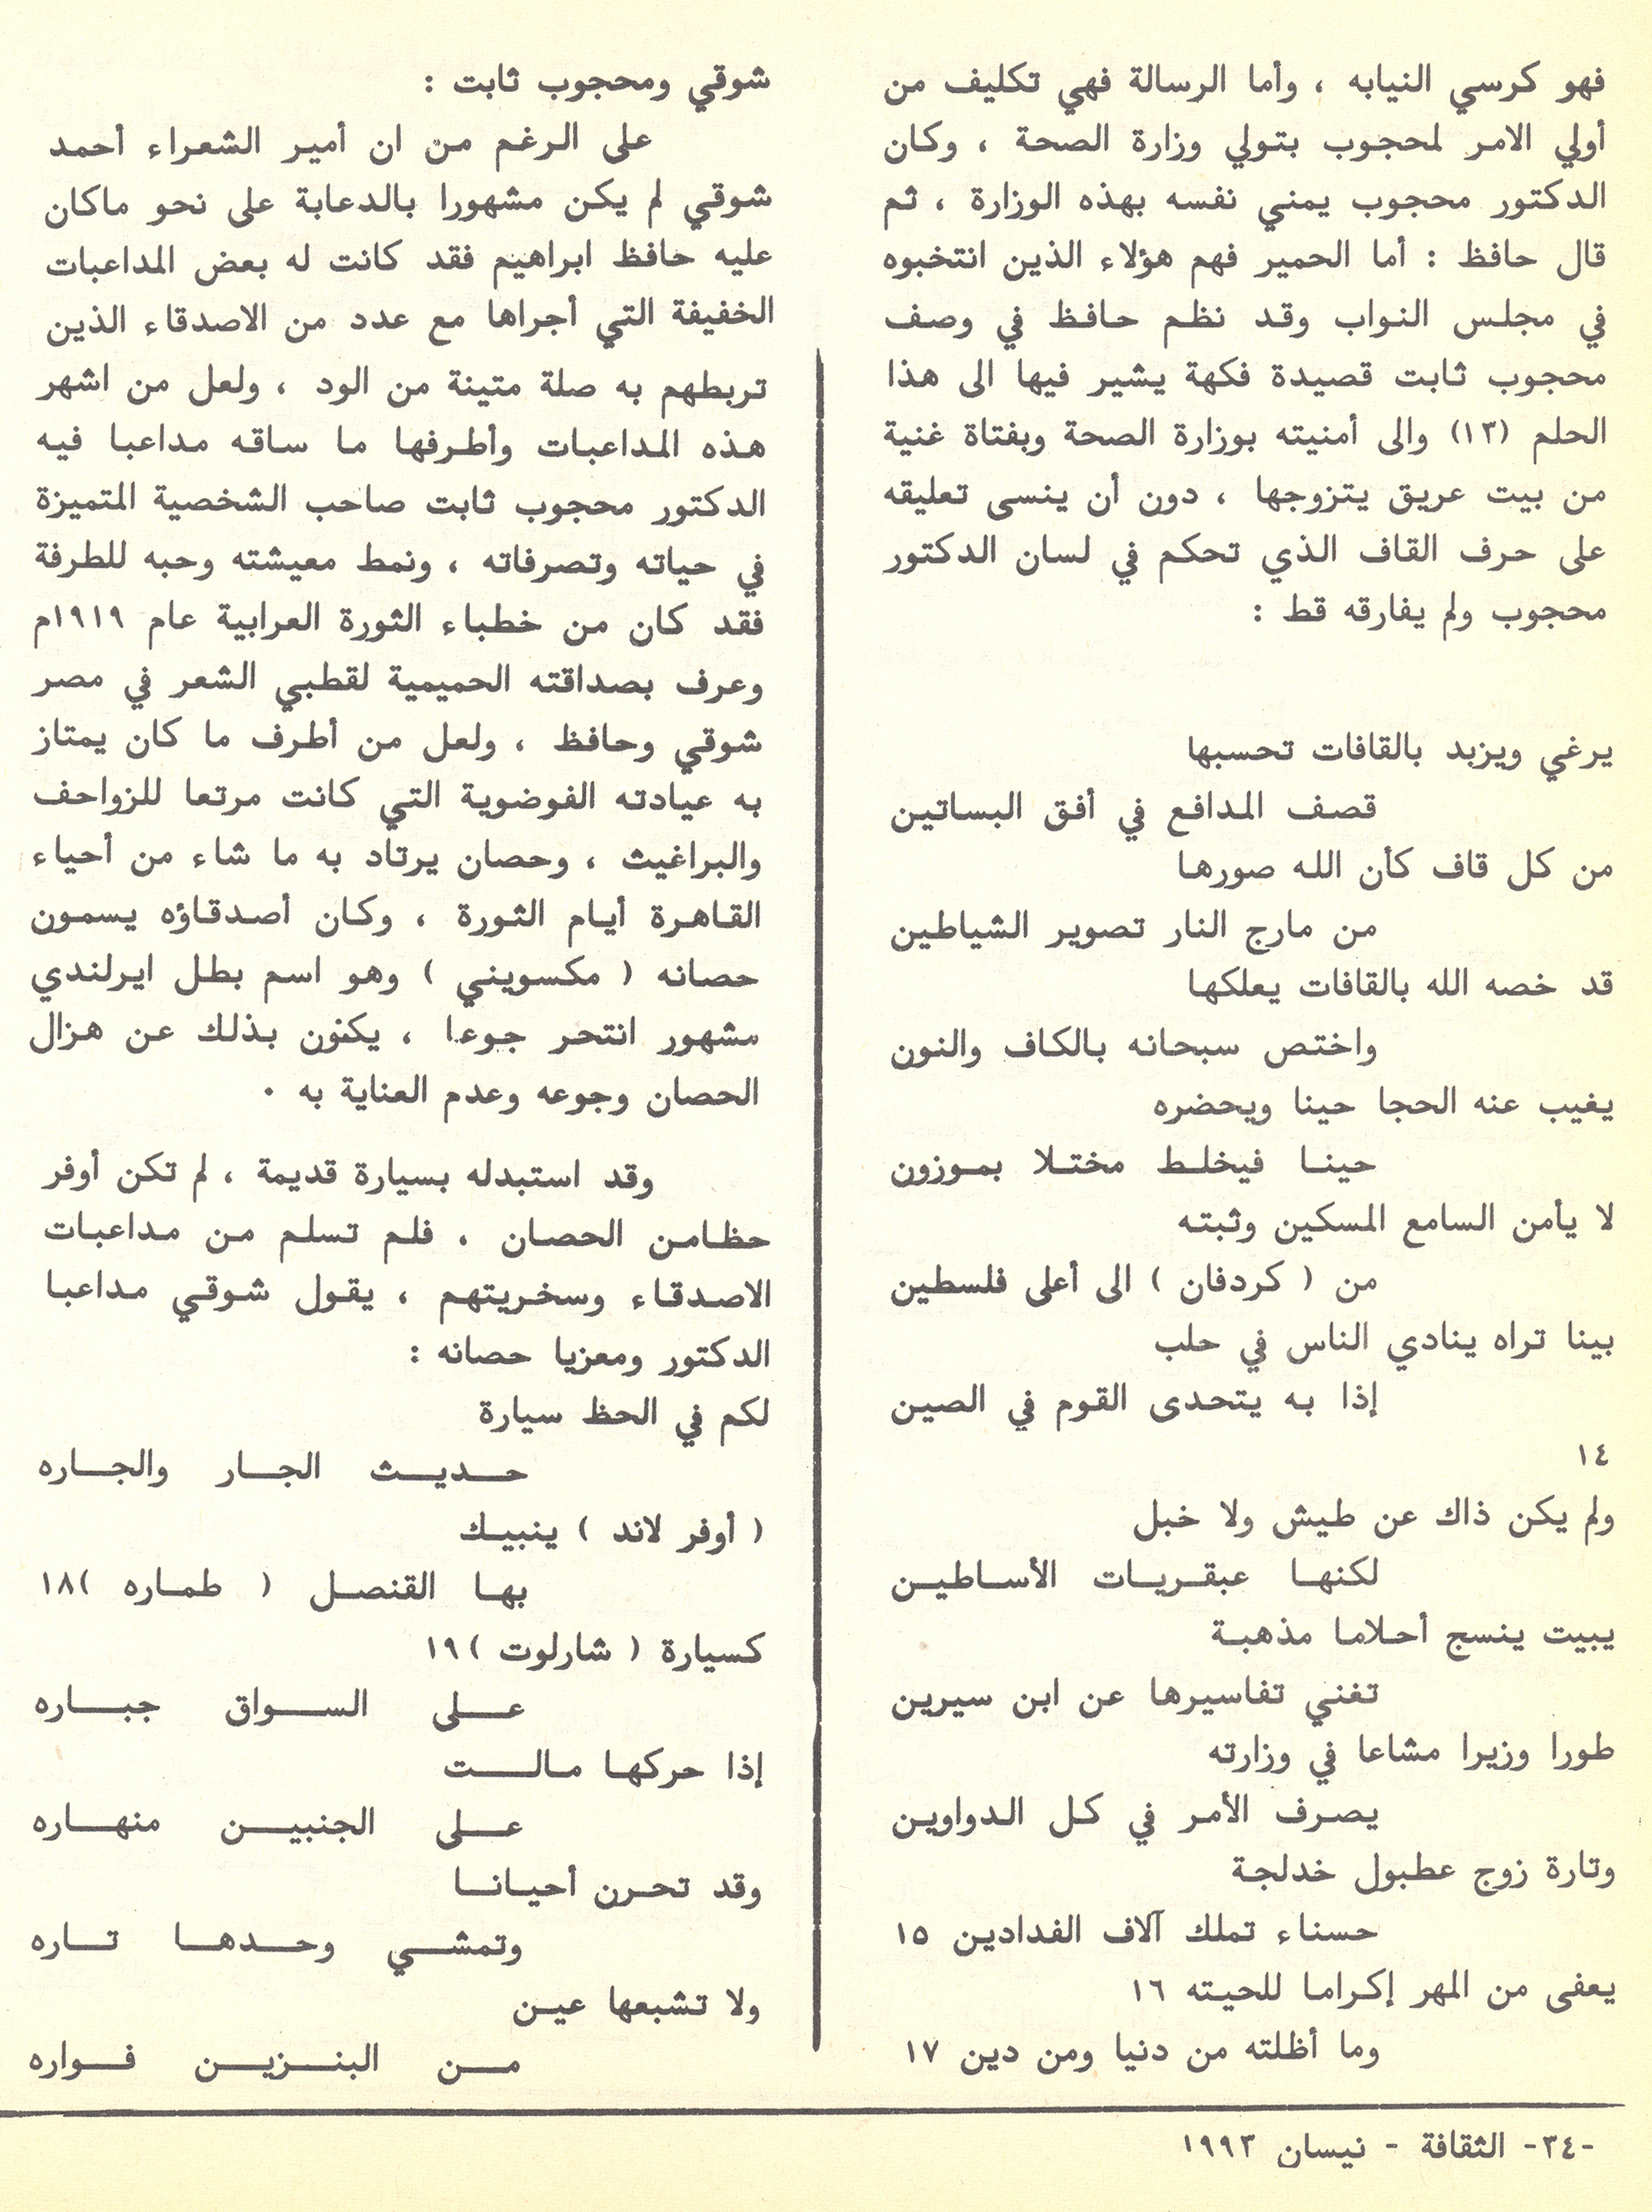 فهو كرسي النيابه ، وأما الرسالة فهي تكليف من
أولي الامر لمحجوب بتولي وزارة الصحة ، وكان
الدكتور محجوب يمني نفسه بهذه الوزارة ، ثم
قال حافظ : أما الحمير فهم هؤلاء الذين انتخبوه
في مجلس النواب وقد نظم حافظ في وصف
محجوب ثابت قصيدة فكهة يشير فيها الى هذا
الحلم (١٣) والى أمنيته بوزارة الصحة وبفتاة غنية
من بيت عريق يتزوجها ، دون أن ينسى تعليقه
على حرف القاف الذي تحكم في لسان الدكتور
محجوب ولم يفارقه قط :
يرغي ويزبد بالقافات تحسبها
قصف المدافع في أفق البساتين
من كل قاف كأن الله صورها
من مارج النار تصوير الشياطين
قد خصه الله بالقافات يعلكها
واختص سبحانه بالكاف والنون
يغيب عنه الحجا حينا ويحضره
حينا فيخلط مختلا بموزون
لا يأمن السامع المسكين وثبته
من ( كردفان ) الى أعلى فلسطين
بينا تراه ينادي الناس في حلب
إذا به يتحدى القوم في الصين
١٤
ولم يكن ذاك عن طيش ولا خبل
لكنها عبقريات الأساطين
يبيت ينسج أحلاما مذهبة
تغني تفاسيرها عن ابن سيرين
طورا وزيرا مشاعا في وزارته
يصرف الأمر في كل الدواوين
وتارة زوج عطبول خدلجة
حسناء تملك آلاف الفدادين ١٥
يعفى من المهر إكراما للحيته ١٦
وما أظلته من دنيا ومن دين ١٧
شوقي ومحجوب ثابت :
على الرغم من ان أمير الشعراء أحمد
شوقي لم يكن مشهورا بالدعابة على نحو ماكان
عليه حافظ ابراهيم فقد كانت له بعض المداعبات
الخفيفة التي أجراها مع عدد من الاصدقاء الذين
تربطهم به صلة متينة من الود ، ولعل من اشهر
هذه المداعبات وأطرفها ما ساقه مداعبا فيه
الدكتور محجوب ثابت صاحب الشخصية المتميزة
في حياته وتصرفاته ، ونمط معيشته وحبه للطرفة
فقد كان من خطباء الثورة العرابية عام ١٩١٩م
وعرف بصداقته الحميمية لقطبي الشعر في مصر
شوقي وحافظ ، ولعل من أطرف ما كان يمتاز
به عيادته الفوضوية التي كانت مرتعا للزواحف
والبراغيث ، وحصان يرتاد به ما شاء من أحياء
القاهرة أيام الثورة ، وكان أصدقاؤه يسمون
حصانه ( مكسويني ) وهو اسم بطل ايرلندي
مشهور انتحر جوعا ، يكنون بذلك عن هزال
الحصان وجوعه وعدم العناية به ٠
وقد استبدله بسيارة قديمة ، لم تكن أوفر
حظامن الحصان ، فلم تسلم من مداعبات
الاصدقاء وسخريتهم ، يقول شوقي مداعبا
الدكتور ومعزيا حصانه :
لكم في الحظ سيارة
حديث الجار والجاره
( أوفر لاند ) ينبيك
بها القنصل ( طماره )١٨
كسيارة ( شارلوت )١٩
على السواق جباره
إذا حركها مالت
على الجنبين منهاره
وقد تحرن أحيانا
وتمشي وحدها تاره
ولا تشبعها عين
من البنزين فواره
-٣٤- الثقافة - نيسان ١٩٩٣